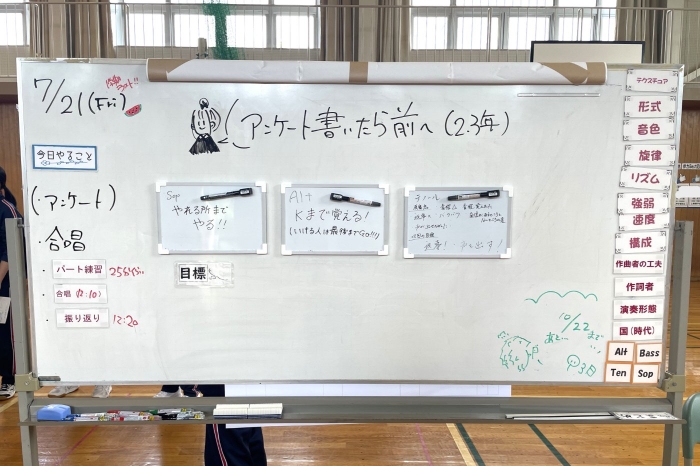 7/21(Fri)
アンケート書いたら前へ(2.3年)
今日やること
(・アンケート)
・合唱
・パート練習 25分ぐらい
・合唱(12:10)
・振り返り 12:20
Sop
やれる所まで
やる!!
Alt
Kまで覚える!
(いける人は最後までGO!!!)
テノール
目標
テクスチュア
形式
音色
旋律
リズム
強弱
速度
構成
作曲者の工夫
作詞者
演奏形態
国(時代)
Alt
Bass
Ten
Sop
10/22
まで
あと…
3日